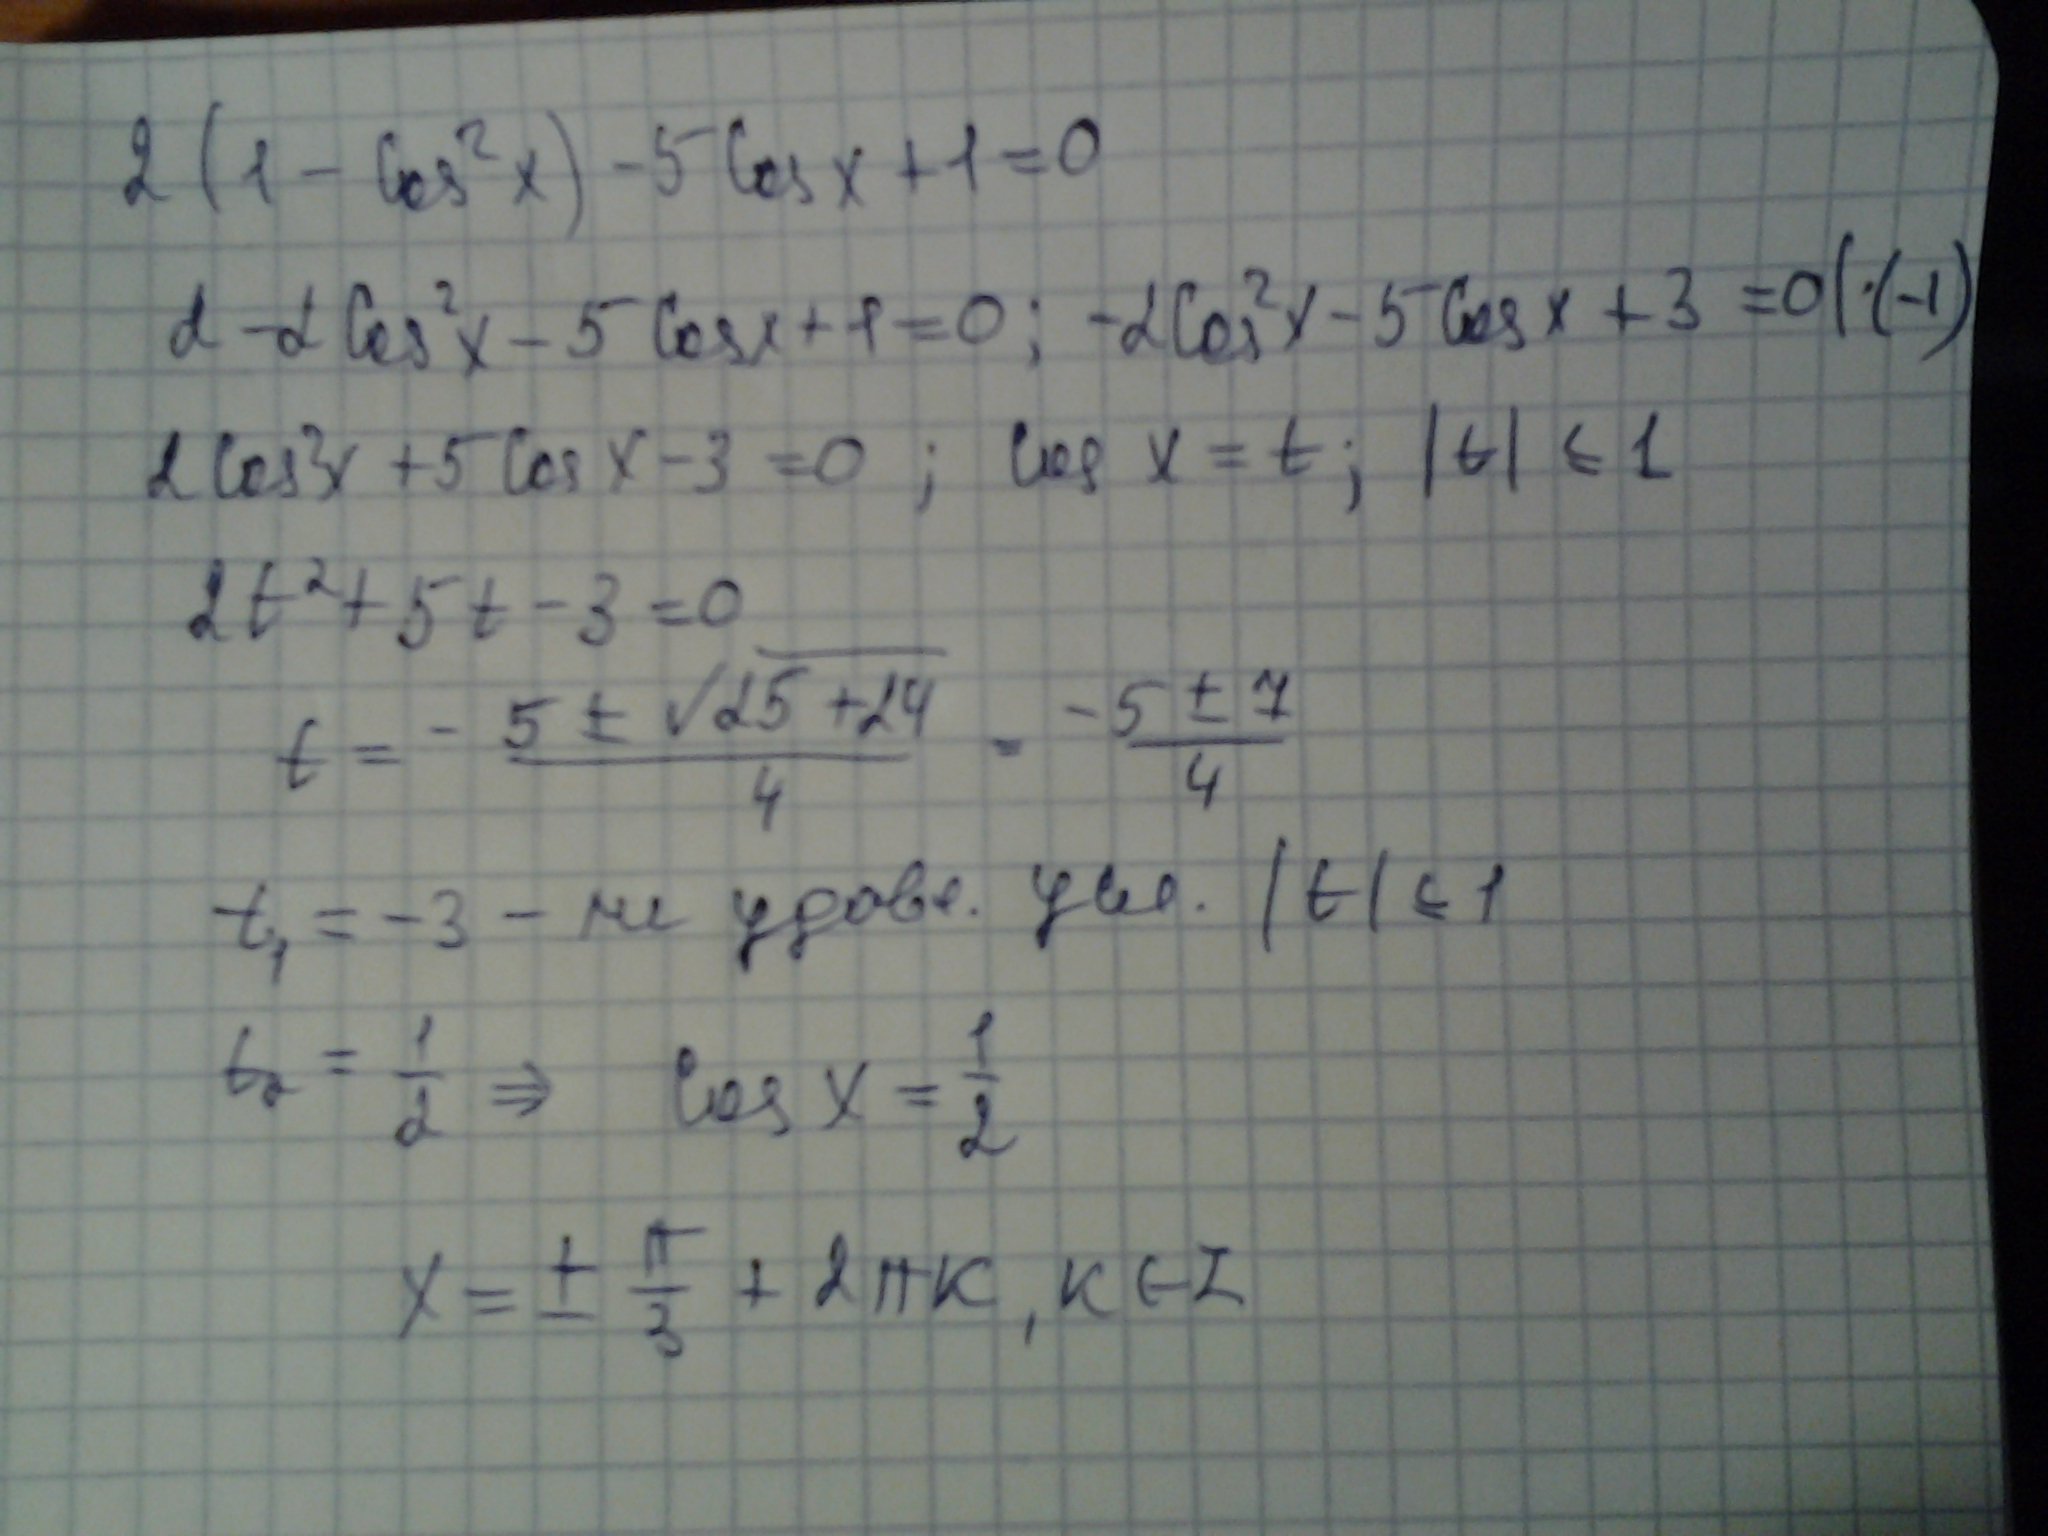 2(1 - cos²x) - 5cos x + 1 = 0
2 - 2cos²x - 5cos x + 1 = 0; -2cos²x - 5cos x + 3 = 0 |·(-1)
2cos²x + 5cos x - 3 = 0; cos x = t; |t| ≤ 1
2t² + 5t - 3 = 0
t = -5 ± √(25 + 24) / 4 = -5 ± 7 / 4
t₁ = -3 - не удовл. усл. |t| ≤ 1
t₂ = 1/2 ⇒ cos x = 1/2
x = ± π/3 + 2πk, k ∈ Z